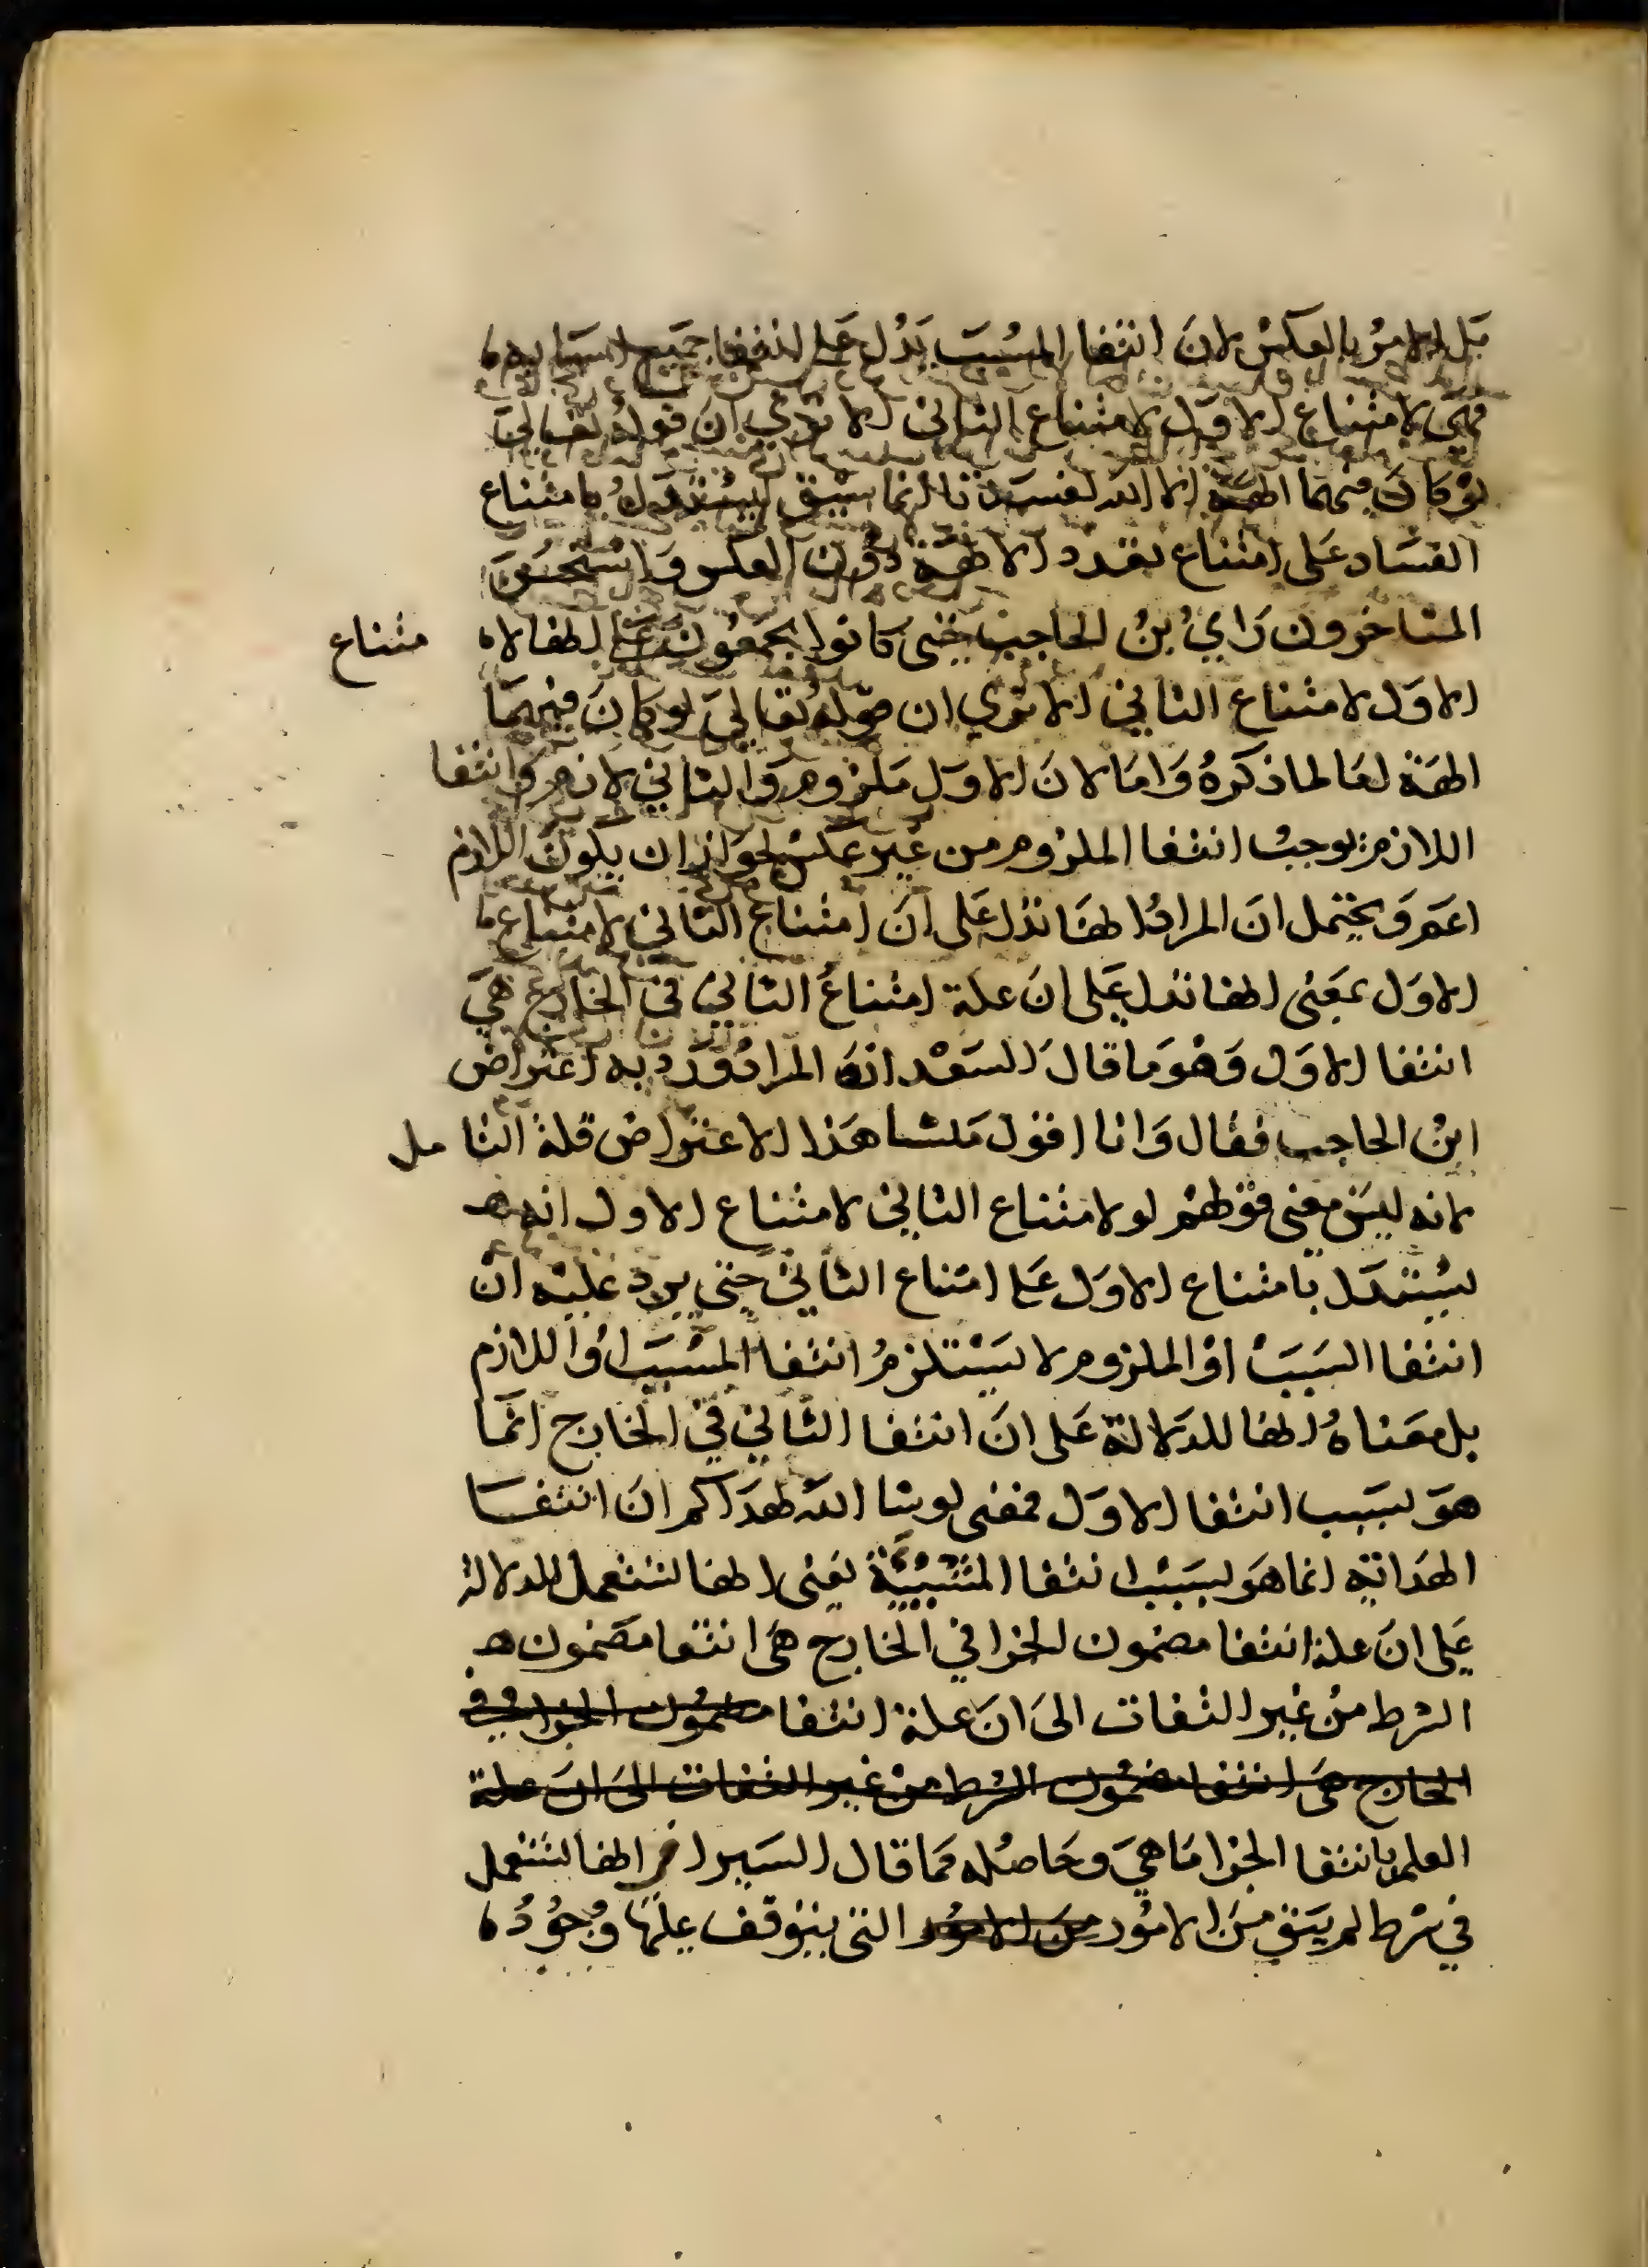 بَل الامرُ بالعكس لانَ انتفا المسُبَب يَدُل عَلى انتفا جَميع اسبَابه ه
فهيَ لامتناع الاوَل لامتناع الثاني الا تري انَ قوله تعَاليَ
لوْ كانَ فيهمَا الهة الا الله لفسَدَتا انما سيق ليسُتدَل بامتناع
الفسَاد عَلى امتناع تعَدد الالهَة دوُن العكس وَاستحسَنَ
المتاخرون رَايُ بنُ الحاجب حتى كانوا يجمعُون عَلى انها لاه متناع
الاوَل لامتناع الثاني الا تري ان قوله تعَاليَ لو كانَ فيهمَا
الهَة امَا لما ذكرهُ وَامَا لانَ الاوَل مَلزوم وَالثاني لازم وَانتفا
اللازم يوجبُ انتفا الملزوم من غير عَكس لجوَاز ان يكونَ اللازم
اعَم وَيحتمل انَ المرادُ انهَا تدَل عَلى انَ امتناع الثاني لامتناع ه
الاوَل بمَعنى انها تدل عَلى ان علة امتناعُ الثاني في الخارج هيَ
انتفا الاوَل وَهوَ مَا قالَ السَعْد انهَ المرادُ وَرَد به اعتراض
ابنُ الحاجب فقال وَانا اقول مَنشا هَذا الاعتراض قلة التا مل
لانه ليسَ معنى قوْلهمُ لو لامتناع الثاني لامتناع الاول انه هـ
يسُتدَل بامتناع الاوَل عَلى امتناع الثاني حَتى يرد عَليْه انْ
انتفا السَبَبْ اوْ الملزوم لا يَسْتلزمُ انتفا المسْبَب اوْ اللازم
بل مَعناهُ انها للدَلالة عَلى انَ انتفا الثاني في الخارج انمَا
هوَ بسَبَب انتفا الاوَل فمعنى لو شا الله لهدَاكم انَ انتفـا
الهدَاية انما هوَ بسَبَب انتفا المشيْة يَعني انها تستعمل للدلالة
عَلى انَ علة انتفا مضمون الجزا في الخارج هيَ انتفا مضمون هـ
الشرط منْ غير التفات الىَ انَ علة انتفا مضموُن الجزا في
الخارج هيَ انتفا مضموُن الشرط منْ غير التفات الىَ انَ علة
العلم بانتفا الجزا مَا هيَ وحَاصُله مَا قال السَيرافي انها تستعمل
في شرط لم يَبق منَ الامُور منَ الامُور التى يتوَقف عليهَا وُجوُدُه ه